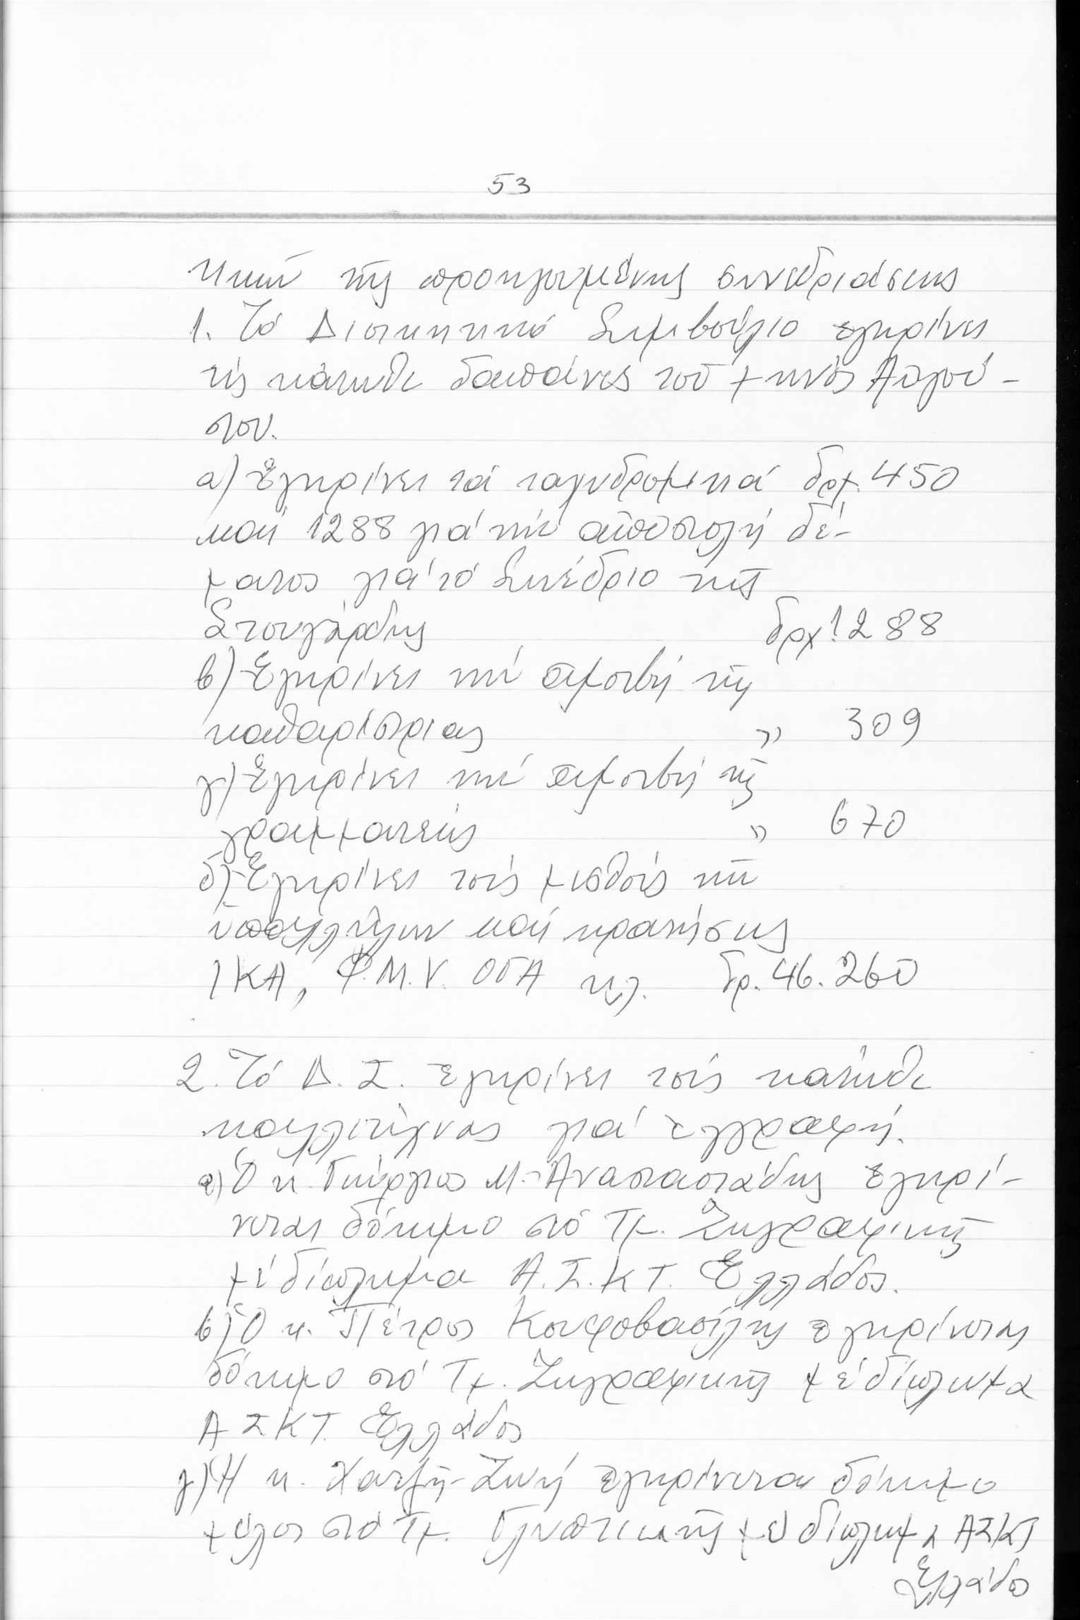 53
τικῶν τῆς προηγουμένης συνεδριάσεως
1. Τό Διοικητικό Συμβούλιο ἐγκρίνει
τίς κάτωθι δαπάνες τοῦ μηνός Αὐγού-
στου.
α) Ἐγκρίνει τά ταχυδρομικά δρχ. 450
καί 1288 γιά τήν ἀποστολή δέ-
ματος γιά τό Συνέδριο τῆς
Στουγάρδης δρχ. 1288
β) Ἐγκρίνει τήν ἀμοιβή τῆς
καθαρίστριας " 309
γ) Ἐγκρίνει τήν ἀμοιβή τῆς
γραμματέως " 670
δ) Ἐγκρίνει τούς μισθούς τῶν
ὑπαλλήλων καί κρατήσεις
ΙΚΑ, Φ.Μ.Υ. ΟΓΑ κλ. δρ. 46.260
2. Τό Δ.Σ. ἐγκρίνει τούς κάτωθι
καλλιτέχνας γιά ἐγγραφή.
α) Ὁ κ. Γεώργιος Μ. Ἀναστασιάδης ἐγκρί-
νεται δόκιμο στό Τμ. Ζωγραφικῆς
μέ δίπλωμα Α.Σ.Κ.Τ. Ἑλλάδος.
β) Ὁ κ. Πέτρος Κουφοβασίλης ἐγκρίνεται
δόκιμο στό Τμ. Ζωγραφικῆς μέ δίπλωμα
ΑΣΚΤ. Ἑλλάδος
γ) Ἡ κ. Χατζῆ-Ζωή ἐγκρίνεται δόκιμο
μέλος στό Τμ. Γλυπτικῆς μέ δίπλωμα ΑΣΚΤ
Ἑλλάδο